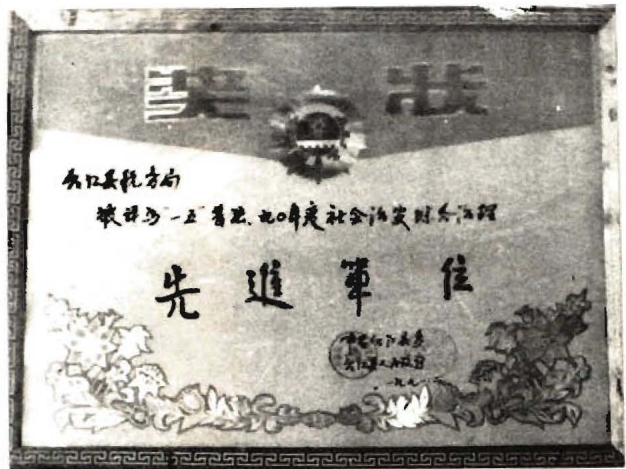 奖 状
江县税务局
被评为“一五”普法、九〇年度社会治安综合治理
先進單位
中共 江县委
江县人民政府
一九九